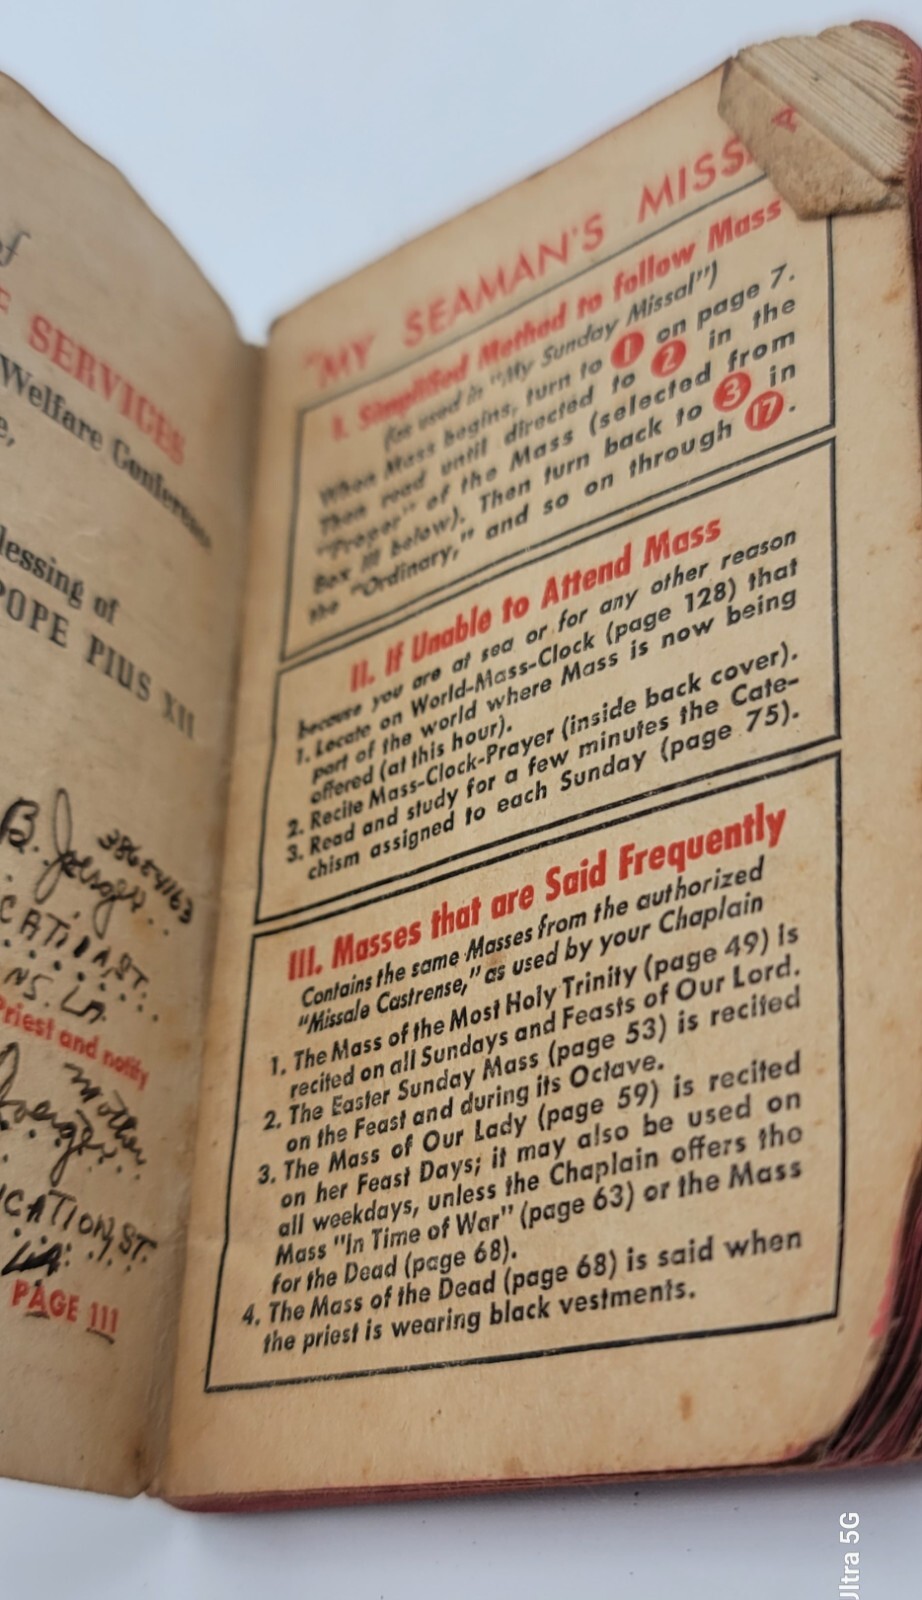 of
SERVICES
Welfare Conference
e,
lessing of
POPE PIUS XII
B.
CATION ST.
NS. LA.
Priest and notify
Mother
CATION ST.
PAGE 111
"MY SEAMAN'S MISSA
I. Simplified Method to follow Mass
(as used in "My Sunday Missal")
When Mass begins, turn to 1 on page 7.
Then read until directed to 2 in the
"Proper" of the Mass (selected from
Box III below). Then turn back to 3 in
the "Ordinary," and so on through 17.
II. If Unable to Attend Mass
because you are at sea or for any other reason
1. Locate on World-Mass-Clock (page 128) that
part of the world where Mass is now being
offered (at this hour).
2. Recite Mass-Clock-Prayer (inside back cover).
3. Read and study for a few minutes the Cate-
chism assigned to each Sunday (page 75).
III. Masses that are Said Frequently
Contains the same Masses from the authorized
"Missale Castrense," as used by your Chaplain
1. The Mass of the Most Holy Trinity (page 49) is
recited on all Sundays and Feasts of Our Lord.
2. The Easter Sunday Mass (page 53) is recited
on the Feast and during its Octave.
3. The Mass of Our Lady (page 59) is recited
on her Feast Days; it may also be used on
all weekdays, unless the Chaplain offers the
Mass "In Time of War" (page 63) or the Mass
for the Dead (page 68).
4. The Mass of the Dead (page 68) is said when
the priest is wearing black vestments.
Ultra 5G